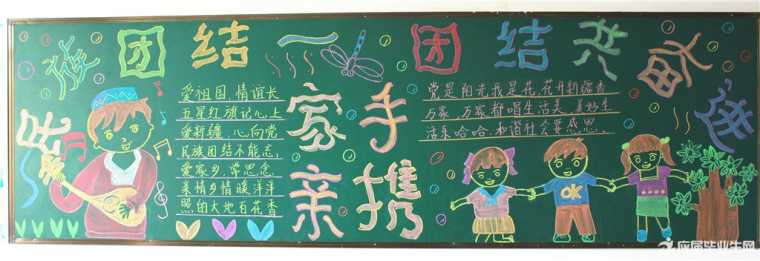 民族团结一家亲
手携
团结共奋进
爱祖国,情谊长
五星红旗记心上
爱新疆,心向党
民族团结不能忘,
爱家乡,常思念
乡情暖洋洋
照的大地百花香
党是阳光我是花,花开新疆香
万家,万家都唱生活美,美好生
活乐哈哈,和谐社会要感恩.
OK
应届毕业生网